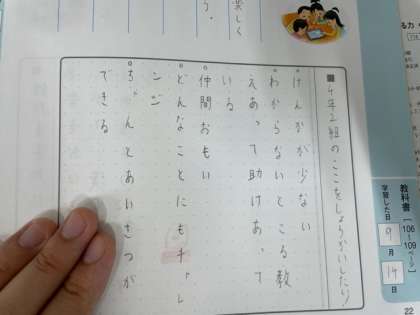 楽しく
う。
■4年2組のここをしょうかいしたい
。けんかが少ない
。わからないところ教
えあって助けあって
いる
。仲間おもい
。どんなことにもチャレ
ンジ
。ちゃんとあいさつが
できる
教科書
106
109
ページ
学習した日
9
月
14
日
22